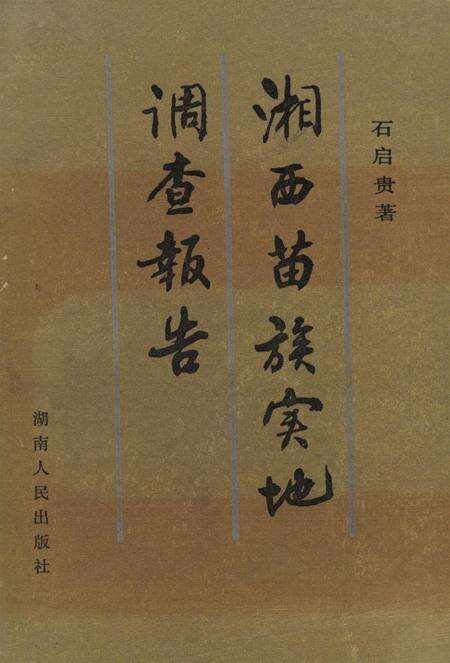 石启贵著
湘西苗族实地
调查報告
湖南人民出版社